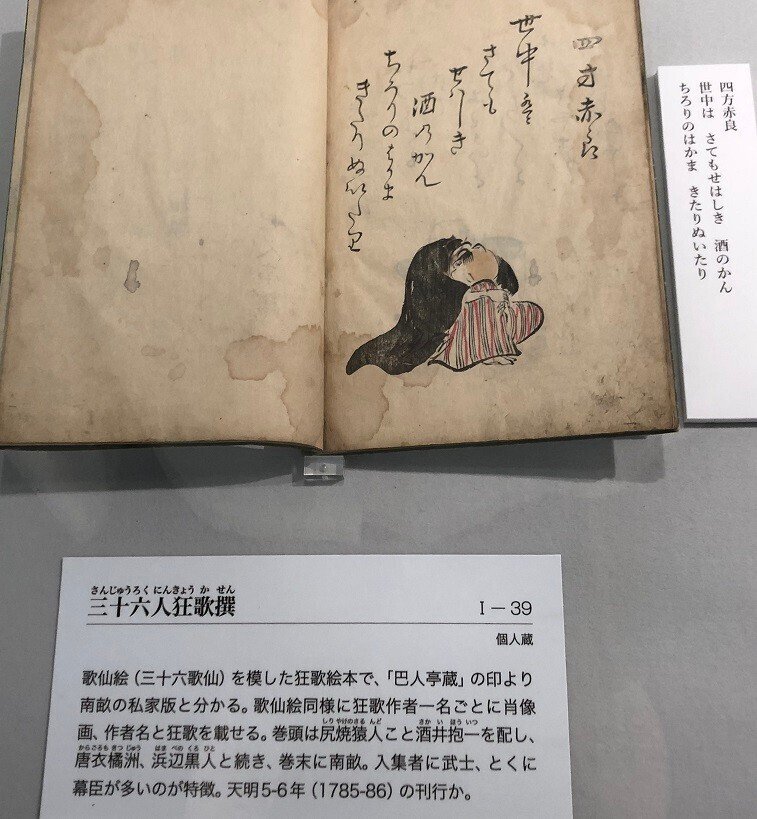 四方赤良
世中は
さても
せはしき
酒のかん
ちろりのはかま
きたりぬいたり
四方赤良
世中は さてもせはしき 酒のかん
ちろりのはかま きたりぬいたり
さんじゅうろくにんきょうかせん
三十六人狂歌撰
I－39
個人蔵
歌仙絵（三十六歌仙）を模した狂歌絵本で、「巴人亭蔵」の印より
南畝の私家版と分かる。歌仙絵同様に狂歌作者一名ごとに肖像
画、作者名と狂歌を載せる。巻頭は尻焼猿人こと酒井抱一を配し、
唐衣橘洲、浜辺黒人と続き、巻末に南畝。入集者に武士、とくに
幕臣が多いのが特徴。天明5-6年（1785-86）の刊行か。